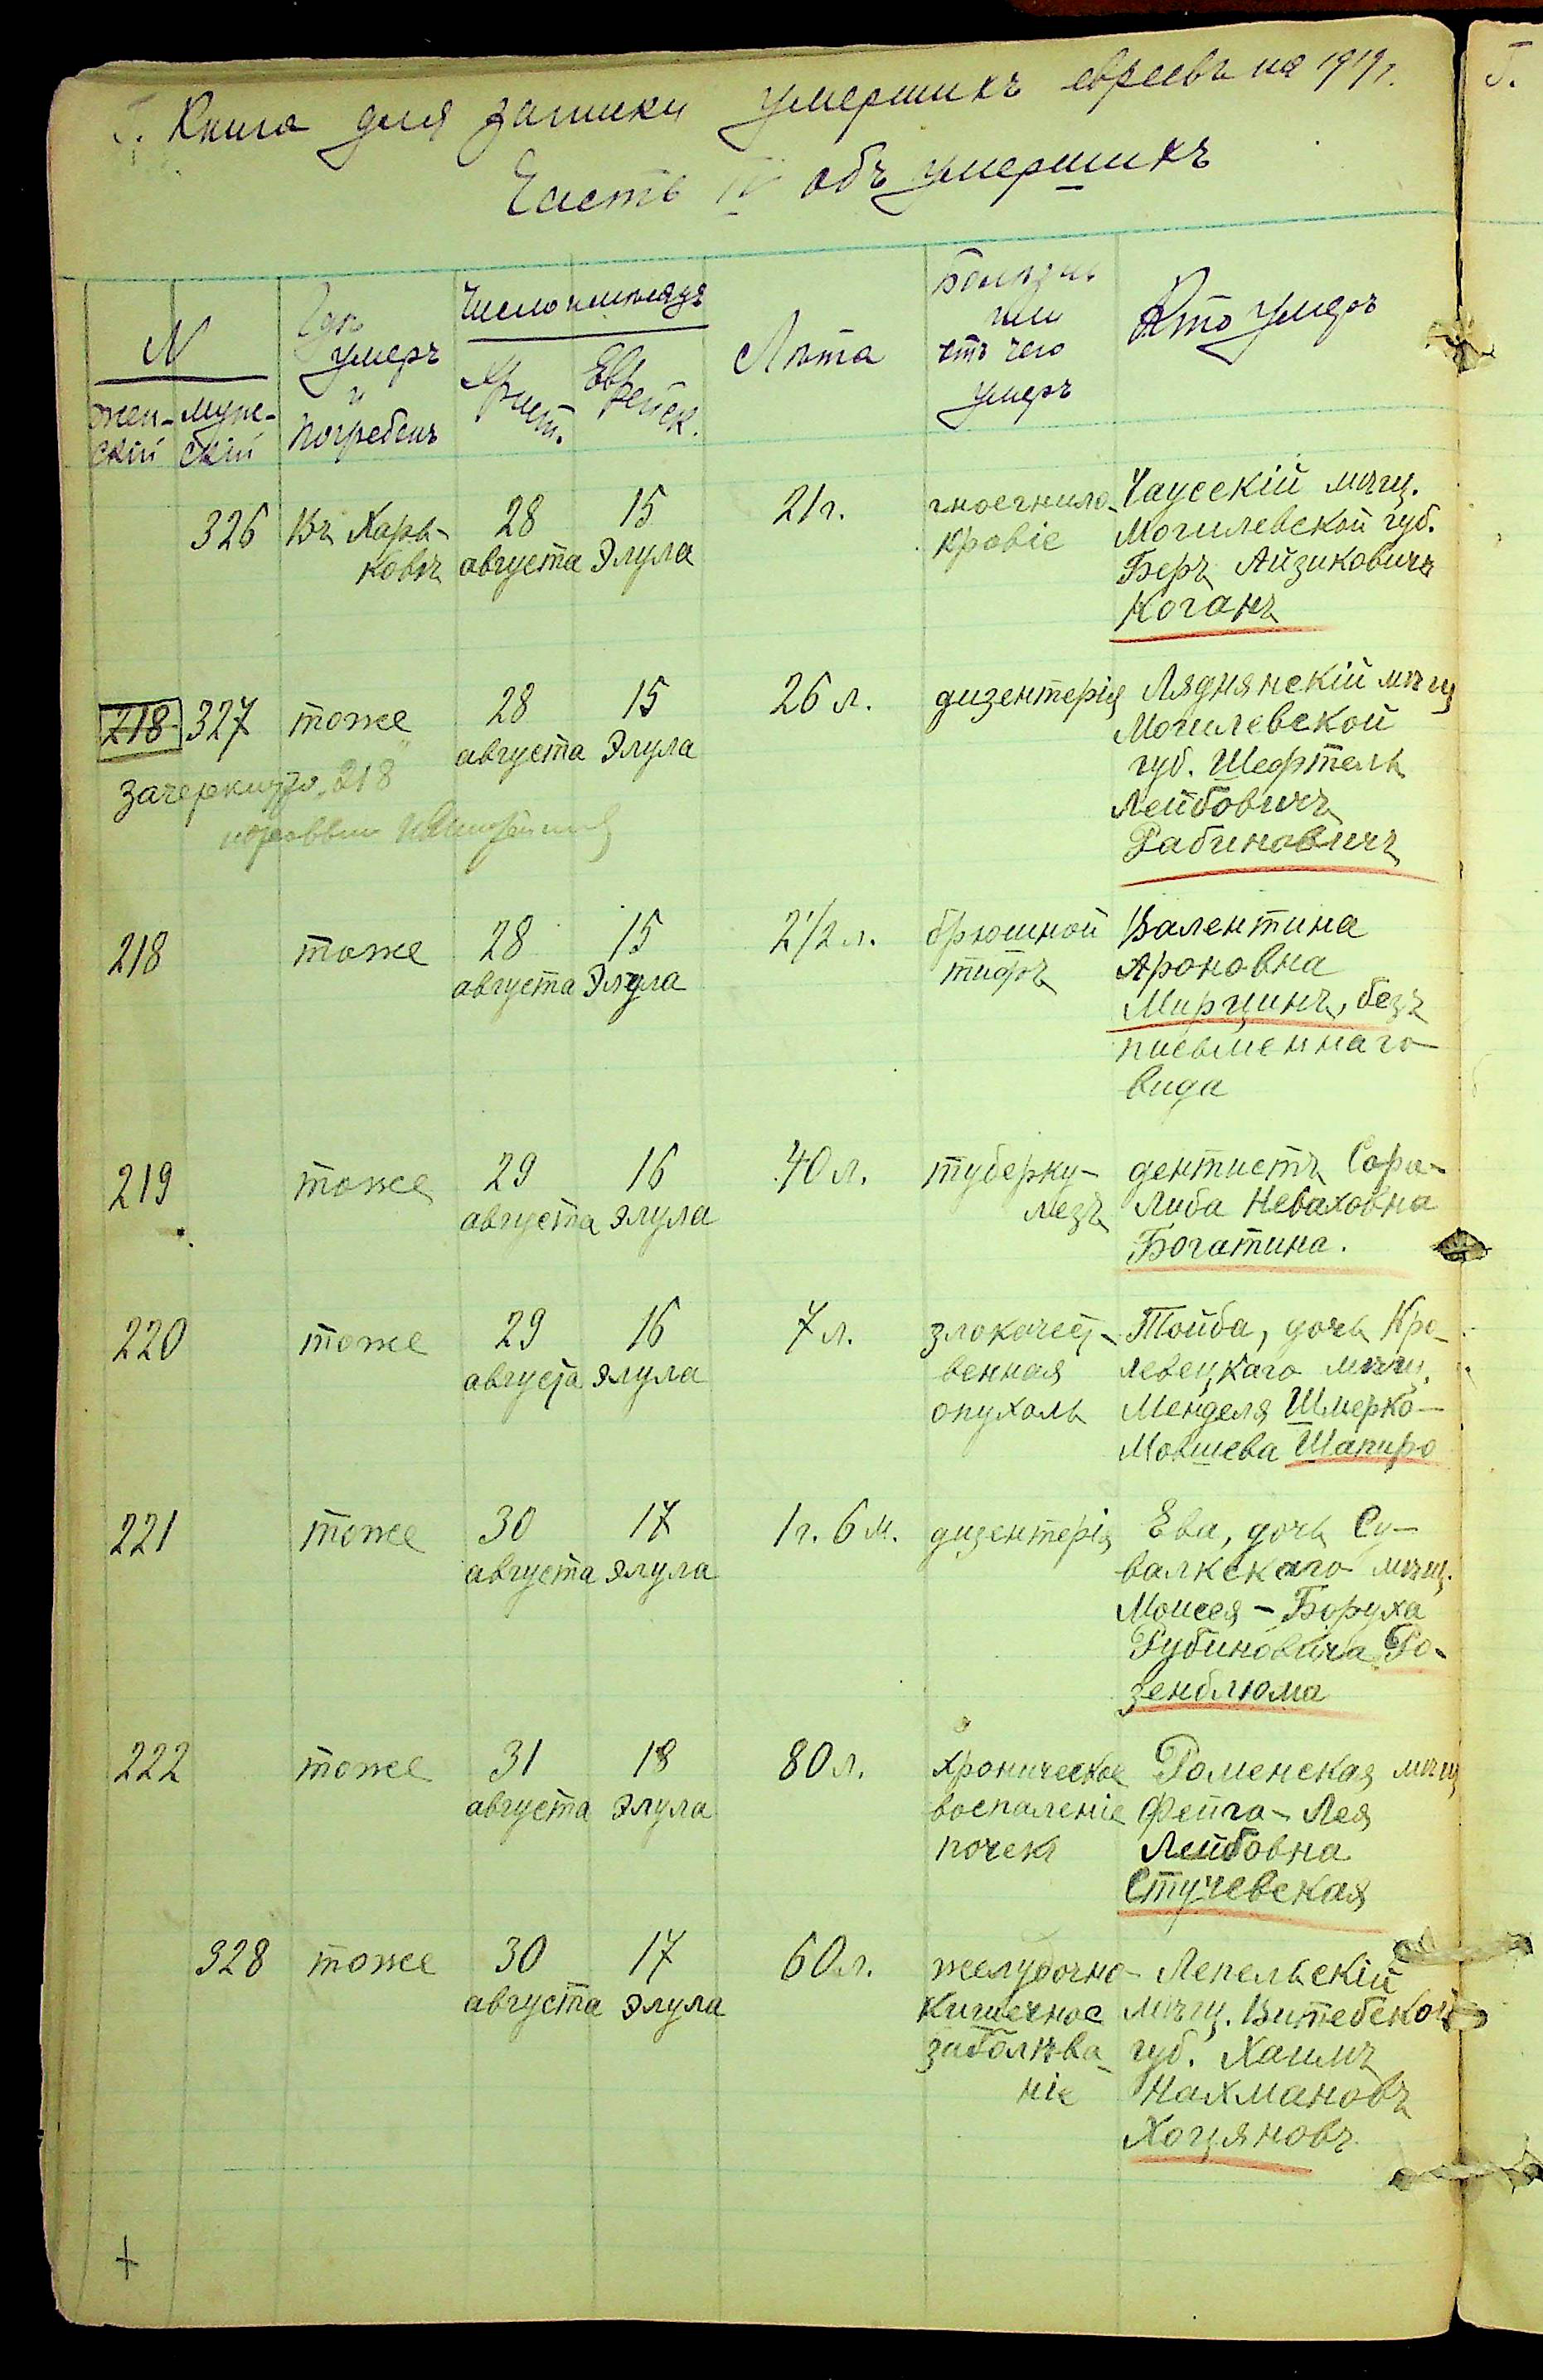 Г. Книга для записки умершихъ евреевъ на 1919 г.
Часть IV объ умершихъ
N
жен-
скій
муже-
скій
Гдѣ
умеръ
и
погребенъ
Число и мѣсяцъ
Христ.
Еврейск.
Лѣта
Болѣзнь
или
отъ чего
умеръ
Кто умеръ
326 Въ Харь-
ковѣ
28
августа
15
Элула
21 г.
гноегнило-
кровіе
Чаусскій мѣщ.
Могилевской губ.
Беръ Айзиковичъ
Коганъ
218 327 тоже
28
августа
15
Элула
26 л.
дизентерія
Ляднянскій мѣщ
Могилевской
губ. Шефтель
Лейбовичъ
Рабиновичъ
зачеркнуто „218"
218 тоже
28
августа
15
Элула
2 1/2 л.
брюшной
тифъ
Валентина
Ароновна
Мирцинъ, безъ
письменнаго
вида
219 тоже
29
августа
16
элула
40 л.
туберку-
лезъ
дентистъ Сора-
Либа Неваховна
Богатина.
220 тоже
29
августа
16
элула
7 л.
злокачест-
венная
опухоль
Тойба, дочь Кро-
левецкаго мѣщ.
Менделя Шмерко-
Мовшева Шапиро
221 тоже
30
августа
17
элула
1 г. 6 м.
дизентерія
Ева, дочь Су-
валкскаго мѣщ.
Моисея-Боруха
Рубиновича Ро-
зенблюма
222 тоже
31
августа
18
элула
80 л.
хроническое
воспаленіе
почекъ
Роменская мѣщ
Фейга-Лея
Лейбовна
Стучевская
328 тоже
30
августа
17
элула
60 л.
желудочно-
кишечное
заболѣва-
ніе
Лепельскій
мѣщ. Витебской
губ. Хаимъ
Нахмановъ
Хоцяновъ
+
Г.